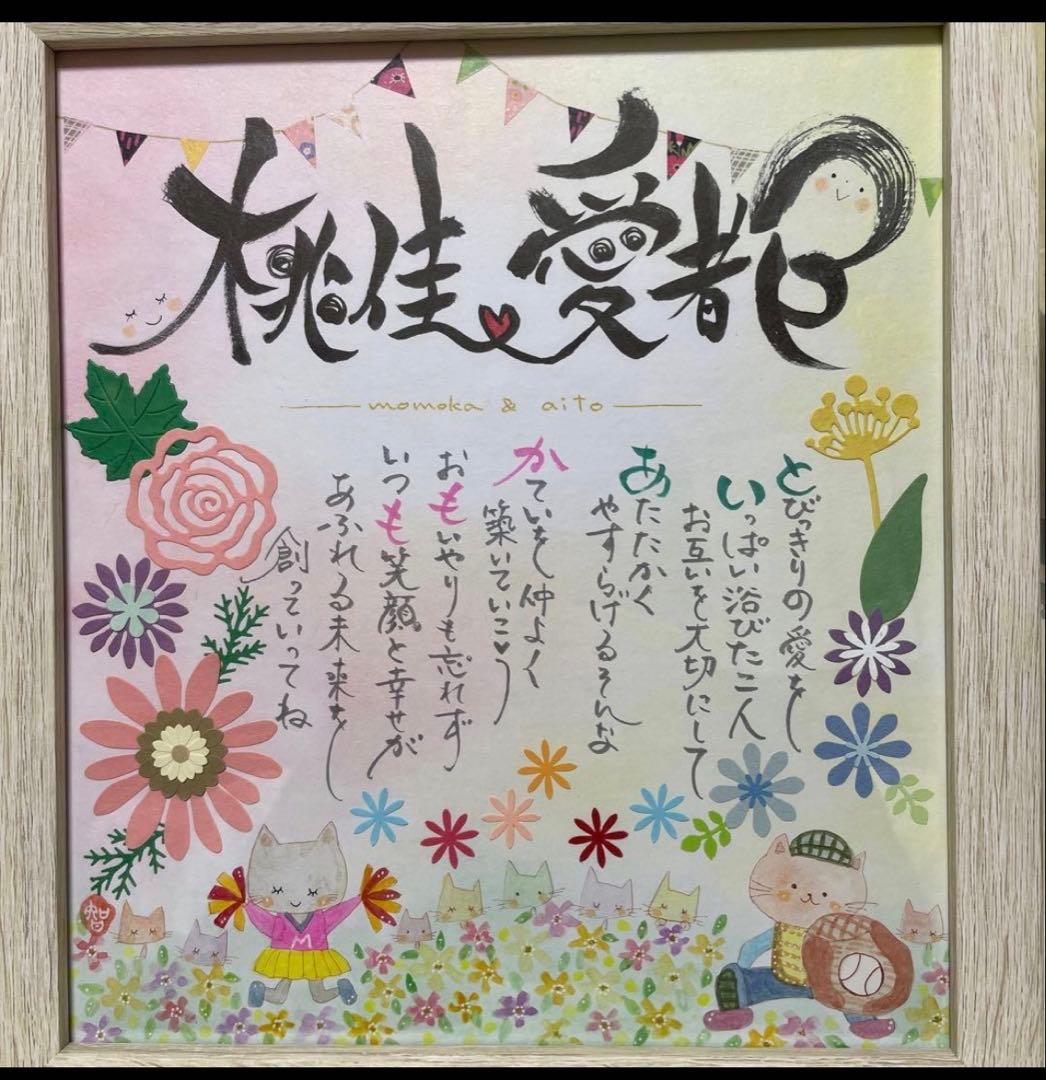 桃佳 愛都
momoka & aito
とびっきりの愛を
いっぱい浴びた二人
お互いを大切にして
あたたかく
やすらげるそんな
かていを仲よく
築いていこう
おもいやりも忘れず
いつも笑顔と幸せが
あふれる未来を
創っていってね
M
智